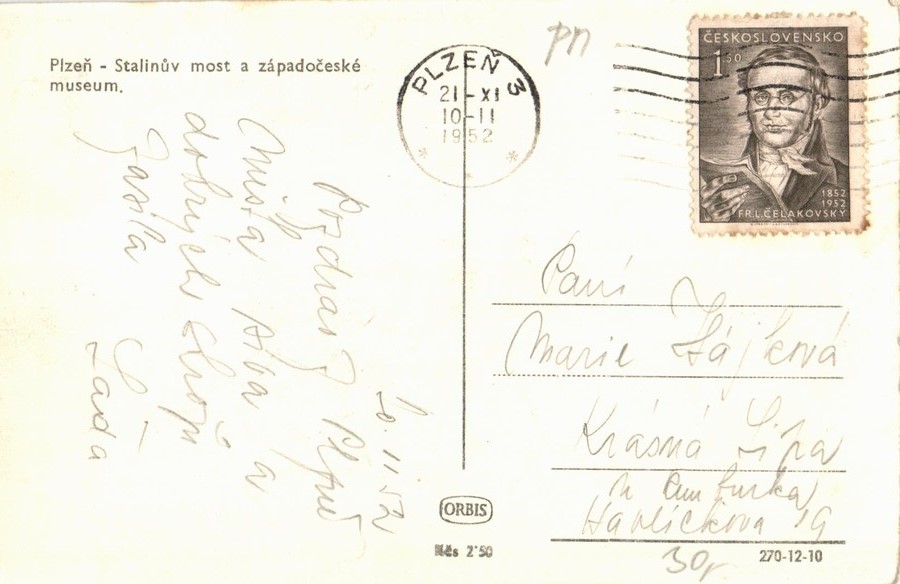 Plzeň - Stalinův most a západočeské
museum.
PLZEŇ 3
21-XI
10-11
1952
pn
ČESKOSLOVENSKO
1 50
1852
1952
FR.L.ČELAKOVSKÝ
20.11.52
Pozdrav z Plzně
města piva a
dobrých
Lada
Paní
Marie Hájková
Krásná Lípa
Havlíčkova 19
30,
ORBIS
Kčs 2'50
270-12-10